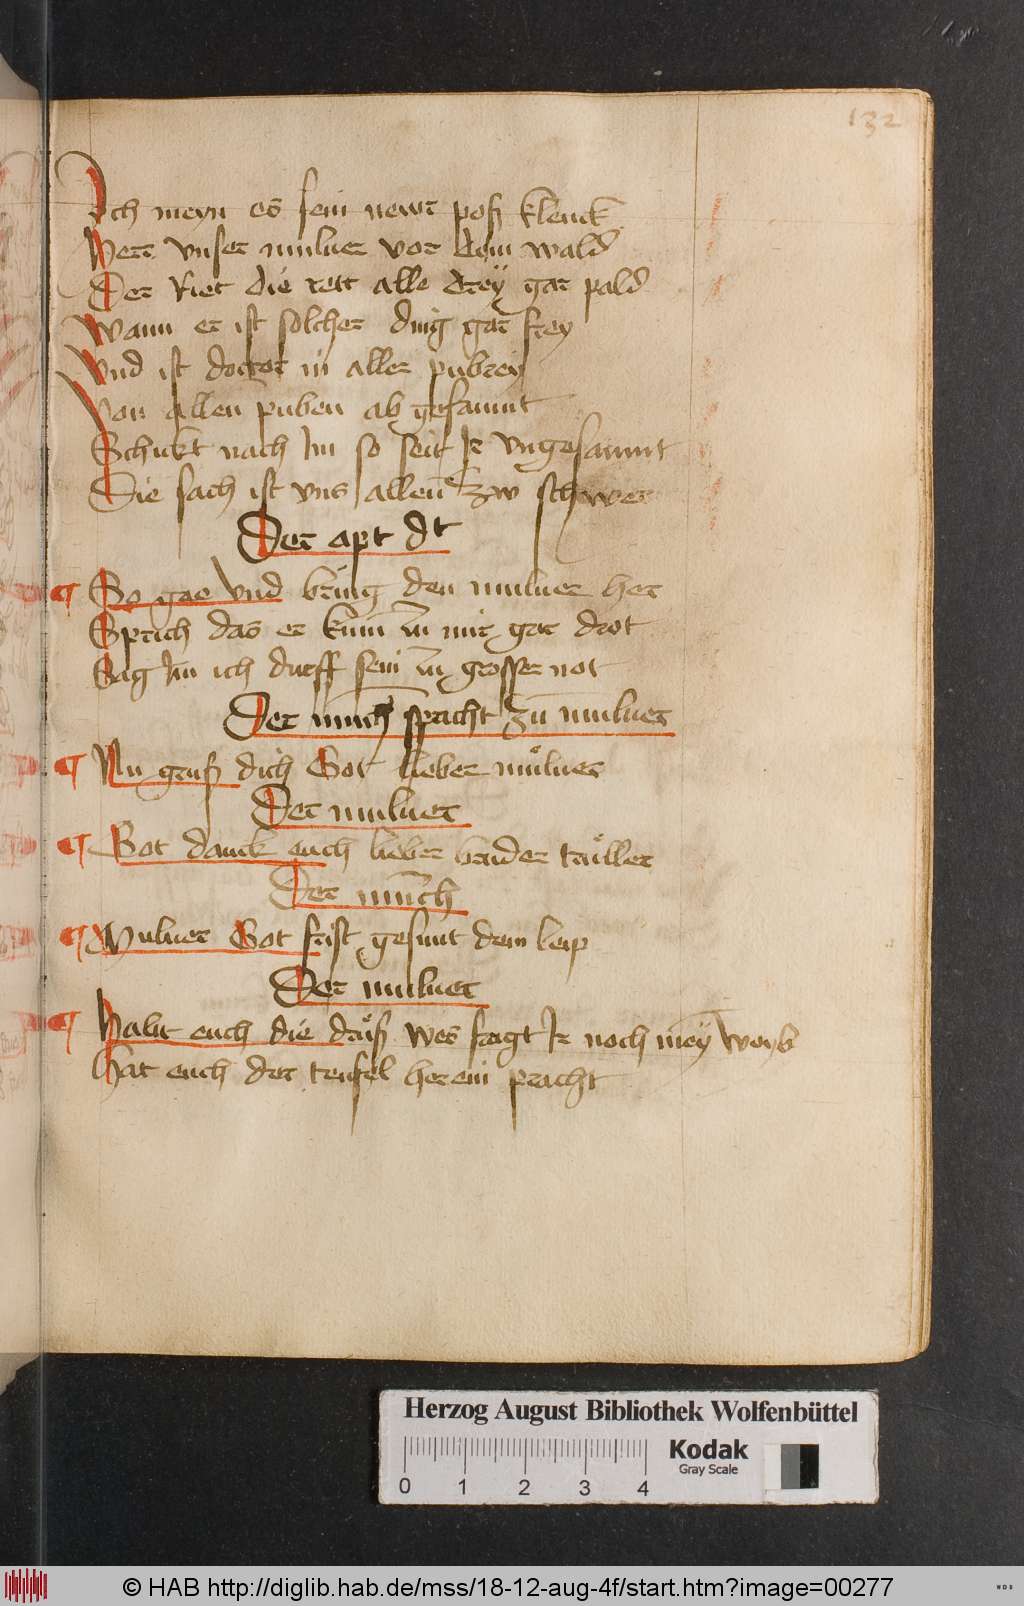 132
Ich meyn es sein newr poß klenck
Herr vnser mulner vor dem wald
Der Riet die rett alle drey gar pald
Wann er ist solcher ding gar frey
Vnd ist doctor in aller pubrey
Von allen puben ab gesannt
Schickt nach Im so seit Ir vngesannt
Die sach ist vns allen zw schwer
Der apt dt
So gee vnd bring den mulner her
Sprich das er kum zu mir gar drot
Sag Im ich durff sein zu grosser not
Der munch spricht zu mulner
Nu gruß dich Got lieber mulner
Der mulner
Got danck euch lieber bruder
Der munch
Mulner Got frist gesunt dem leip
Der mulner
Habt euch die drüß wes fragt Ir noch mey weyb
Hat euch der teufel herein pracht
Herzog August Bibliothek Wolfenbüttel
Kodak
Gray Scale
0 1 2 3 4
© HAB http://diglib.hab.de/mss/18-12-aug-4f/start.htm?image=00277